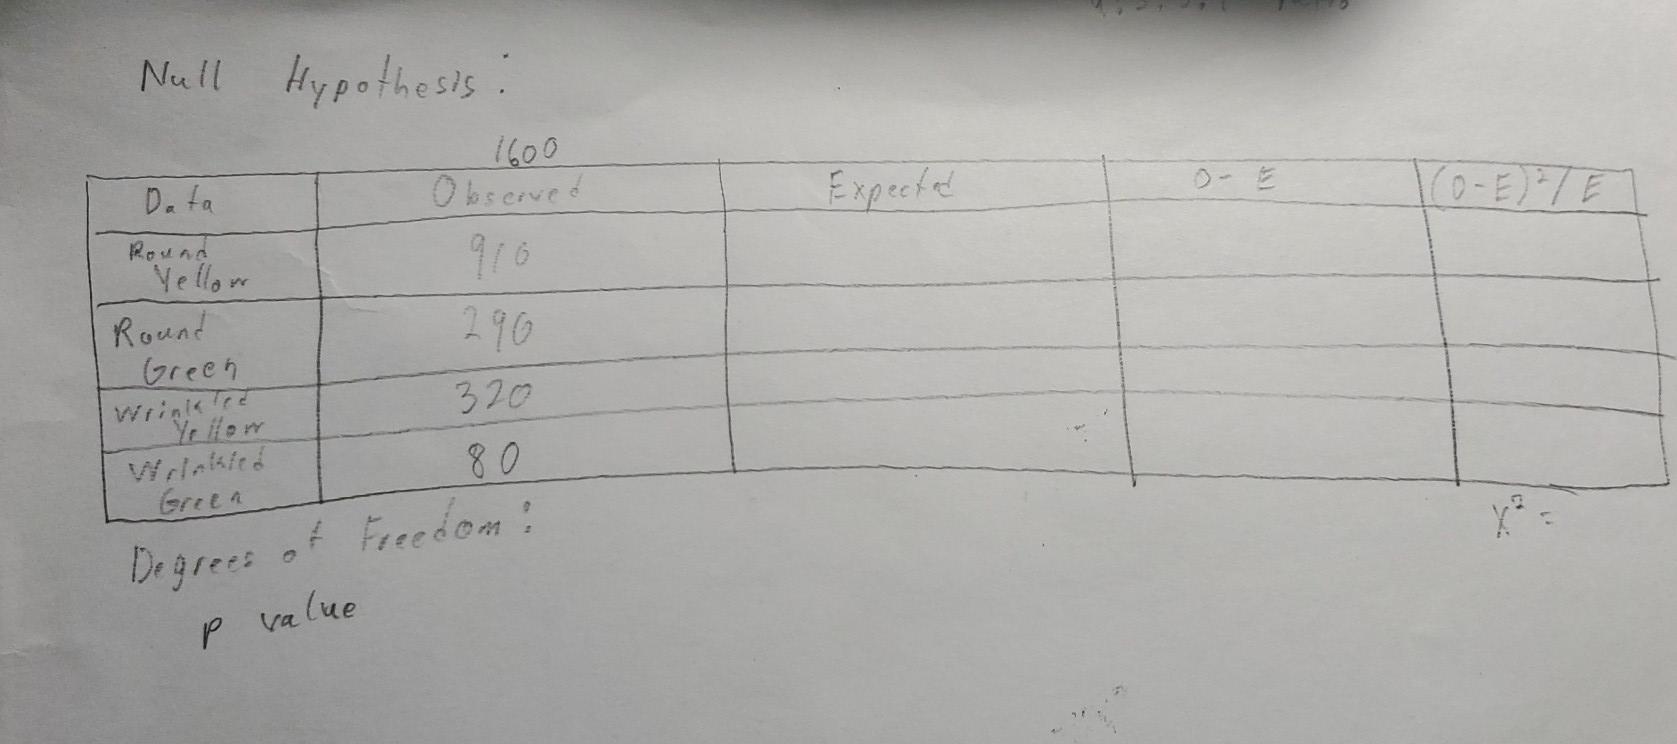 Null Hypothesis:
1600
Data Observed Expected O-E (O-E)²/E
Round
Yellow
910
Round
Green
290
Wrinkled
Yellow
320
Wrinkled
Green
80
X² =
Degrees of Freedom:
p value